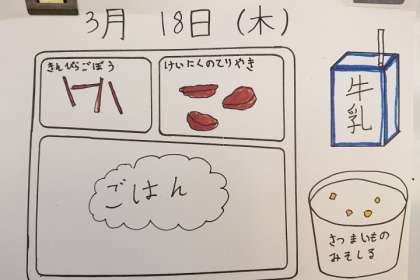 3月 18日 (木)
きんぴらごぼう
けいにくのてりやき
牛乳
ごはん
さつまいもの
みそしる